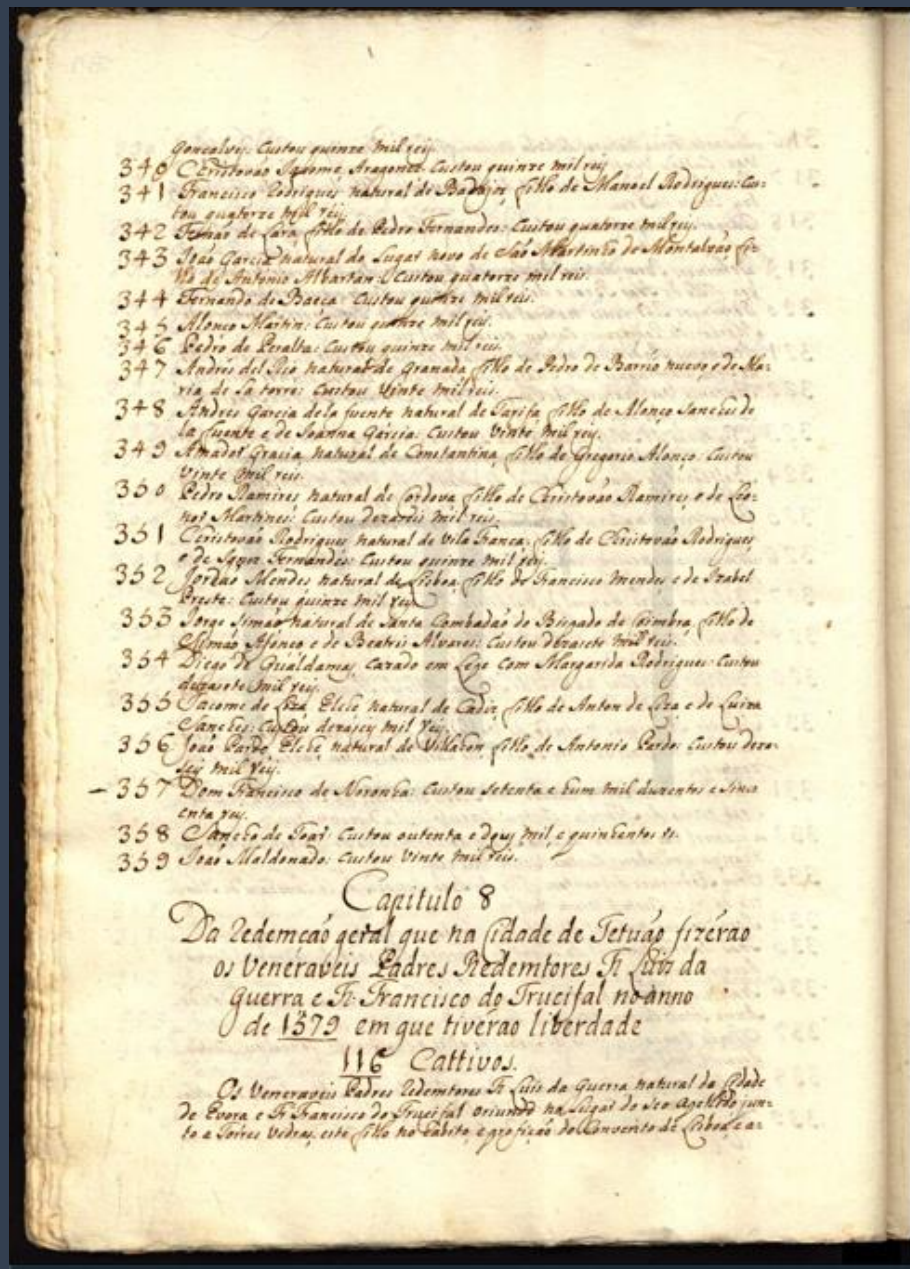 Gonçalves: Custou quinze mil reis.
340 Christovão Jacome Aragones: Custou quinze mil reis
341 Francisco Rodrigues natural de Badajos, filho de Manoel Rodrigues: Cus-
tou quatorze mil reis.
342 Fernão de Lara filho de Pedro Fernandes: Custou quatorze mil reis.
343 João Garcia natural do Lugar novo de São Martinho de Montalvão fi-
lho de Antonio Albartan: Custou quatorze mil reis.
344 Fernando de Baeça: Custou quinze mil reis.
345 Alonço Martin: Custou quinze mil reis.
346 Pedro de Peralta: Custou quinze mil reis.
347 Andres del Rio natural de Granada filho de Pedro de Barrio nuevo, e de Ma-
ria de la torre: Custou vinte mil reis.
348 Andres Garcia de la fuente natural de Tarifa filho de Alonço Sanches de
la fuente e de Joanna Garcia: Custou vinte mil reis.
349 Amador Gracia, natural de Constantina, filho de Gregorio Alonço: Custou
vinte mil reis.
350 Pedro Ramires natural de Cordova filho de Christovão Ramires, e de Leo-
nor Martines: Custou dezaseis mil reis.
351 Christovão Rodrigues natural de Vila franca, filho de Christovão Rodrigues,
e de Fernandes: Custou quinze mil reis.
352 Jordão Mendes natural de Lisboa filho de Francisco Mendes e de Izabel
Preste: Custou quinze mil reis
353 Jorge Simão natural de Santa Combadão do Bispado de Coimbra, filho de
Simão Afonço e de Beatris Alvares: Custou dezasete mil reis.
354 Diego de Gualdamas, cazado em com Margarida Rodrigues: Custou
dezasete mil reis.
355 Jacome de Elche natural de Cadiz, filho de Anton de e de Luiza
Sanches: Custou dezasey mil reis.
356 João Pardo Elche natural de filho de Antonio Pardo: Custou deza-
sey mil reis.
357 Dom Francisco de Noronha: Custou setenta e hum mil duzentos e sinco
enta reis.
358 Sancho de Toar: Custou outenta e dous mil e quinhentos rs.
359 João Maldonado: Custou vinte mil reis.
Capitulo 8
Da Redemcaõ geral que na Cidade de Tetuão fizérão
os Veneraveis Padres Redemtores Fr. Luis da
Guerra e Fr. Francisco do Trucifal no anno
de 1579 em que tivérão liberdade
116 Cattivos.
Os Veneraveis Padres Redemtores Fr. Luis da Guerra natural da Cidade
de Evora e Fr. Francisco do Trucifal oriundo na Lugar do seo apellido jun-
to a Torres Vedras, este filho no habito, e profição do Convento de Lisboa, e a-